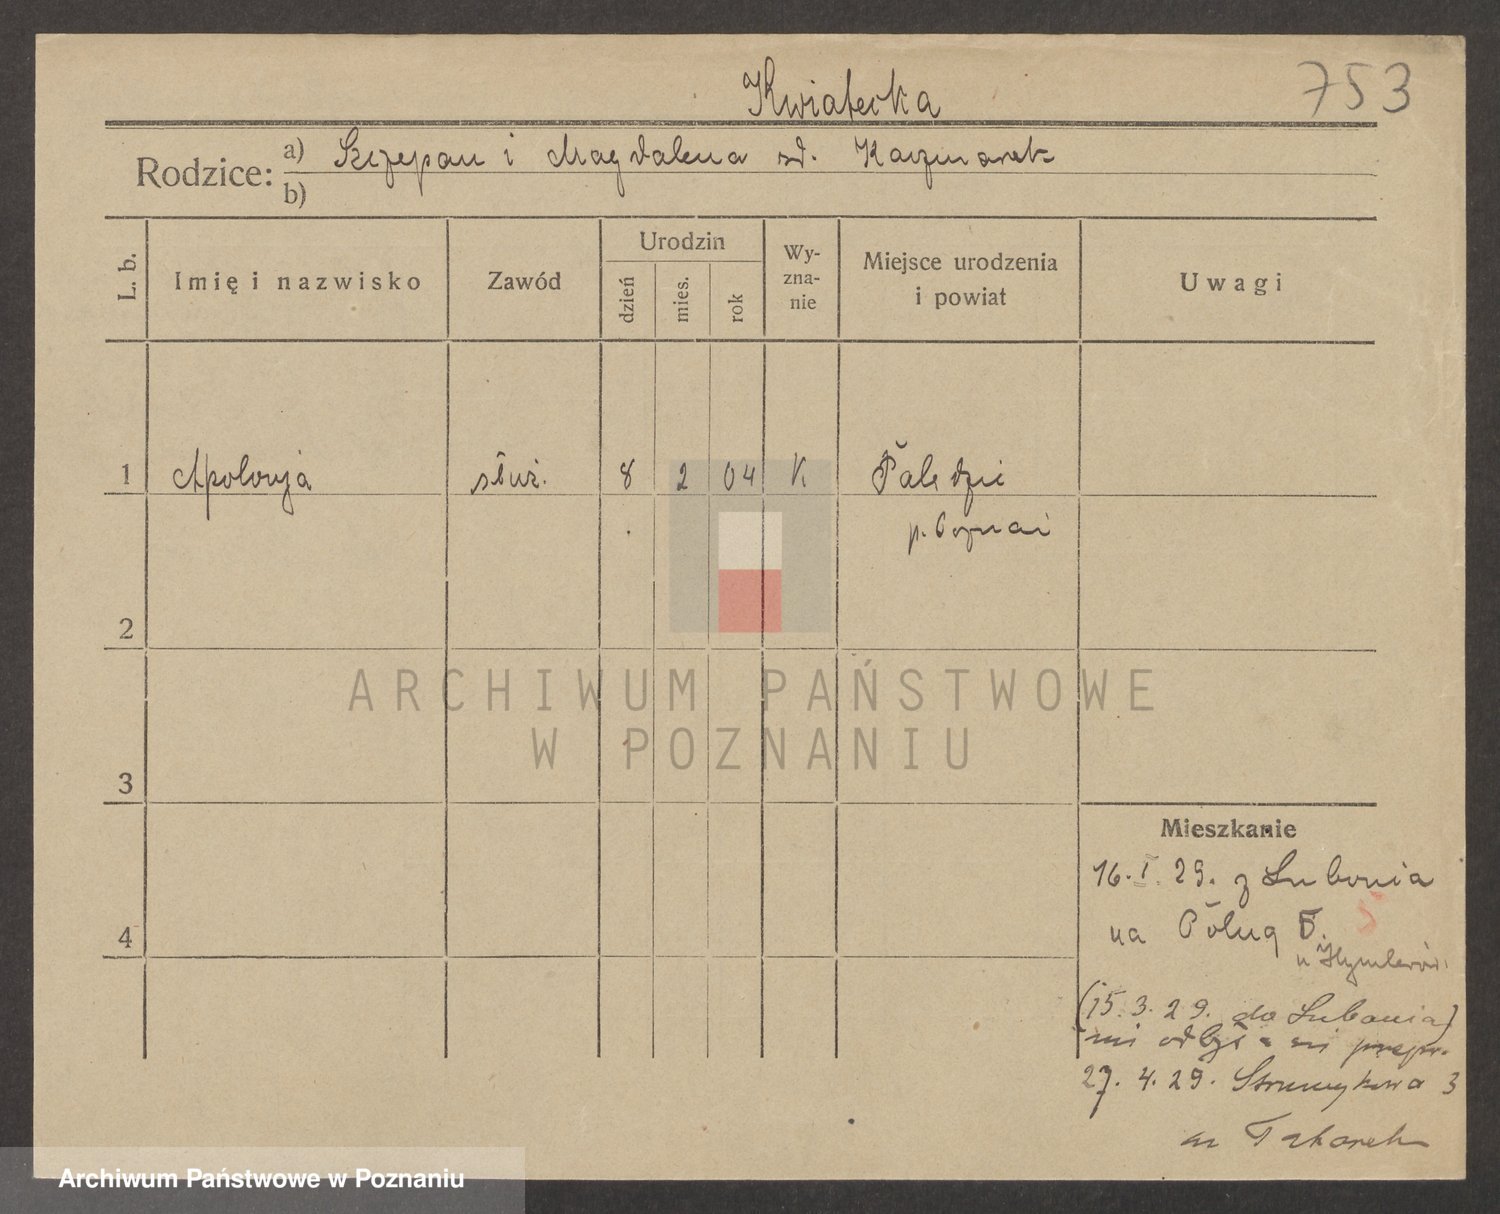 753
Kwiatecka
Rodzice:
a) Szczepan i Magdalena zd. Kaczmarek
b)
L. b.
Imię i nazwisko
Zawód
Urodzin
dzień
mies.
rok
Wy-
zna-
nie
Miejsce urodzenia
i powiat
Uwagi
1 Apolonja służ. 8 2 04 K Palędzie
p. Poznań
2
3
4
Mieszkanie
16. I. 29. z Lubonia
na
(15. 3. 29. do Lubonia)
27. 4. 29. Strumykowa 3
ARCHIWUM PAŃSTWOWE
W POZNANIU
Archiwum Państwowe w Poznaniu